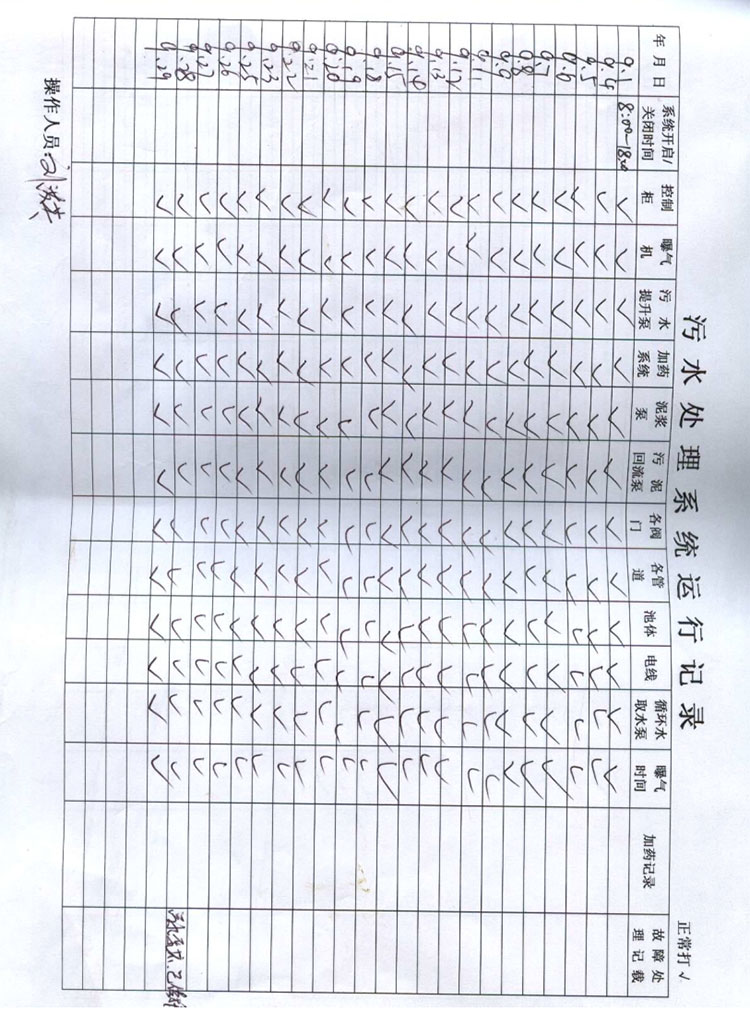 污水处理系统运行记录
正常打√
年月日 系统开启/关闭时间 控制柜 曝气机 污水提升泵 加药系统 泥浆泵 污泥回流泵 各阀门 各管道 池体 电线 循环水取水泵 曝气时间 加药记录 故障处理记载
9.1 8:00-18:00 √ √ √ √ √ √ √ √ √ √ √ √
9.4 √ √ √ √ √ √ √ √ √ √ √ √
9.5 √ √ √ √ √ √ √ √ √ √ √ √
9.6 √ √ √ √ √ √ √ √ √ √ √ √
9.7 √ √ √ √ √ √ √ √ √ √ √ √
9.8 √ √ √ √ √ √ √ √ √ √ √ √
9.9 √ √ √ √ √ √ √ √ √ √ √ √
9.11 √ √ √ √ √ √ √ √ √ √ √ √
9.12 √ √ √ √ √ √ √ √ √ √ √ √
9.13 √ √ √ √ √ √ √ √ √ √ √ √
9.14 √ √ √ √ √ √ √ √ √ √ √ √
9.15 √ √ √ √ √ √ √ √ √ √ √ √
9.18 √ √ √ √ √ √ √ √ √ √ √ √
9.19 √ √ √ √ √ √ √ √ √ √ √ √
9.20 √ √ √ √ √ √ √ √ √ √ √ √
9.21 √ √ √ √ √ √ √ √ √ √ √ √
9.22 √ √ √ √ √ √ √ √ √ √ √ √
9.23 √ √ √ √ √ √ √ √ √ √ √ √
9.25 √ √ √ √ √ √ √ √ √ √ √ √
9.26 √ √ √ √ √ √ √ √ √ √ √ √
9.27 √ √ √ √ √ √ √ √ √ √ √ √
9.28 √ √ √ √ √ √ √ √ √ √ √ √
9.29 √ √ √ √ √ √ √ √ √ √ √ √
操作人员:刘